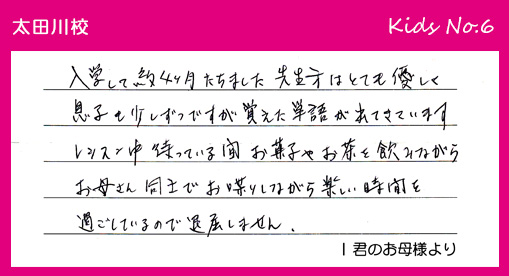 太田川校
Kids No.6
入学して約4ヶ月たちました 先生方はとても優しく
息子も少しずつですが覚えた単語が出てきています
レッスン中 待っている間 お菓子や お茶を飲みながら
お母さん同士でお喋りしながら楽しい時間を
過ごしているので退屈しません。
I 君のお母様より